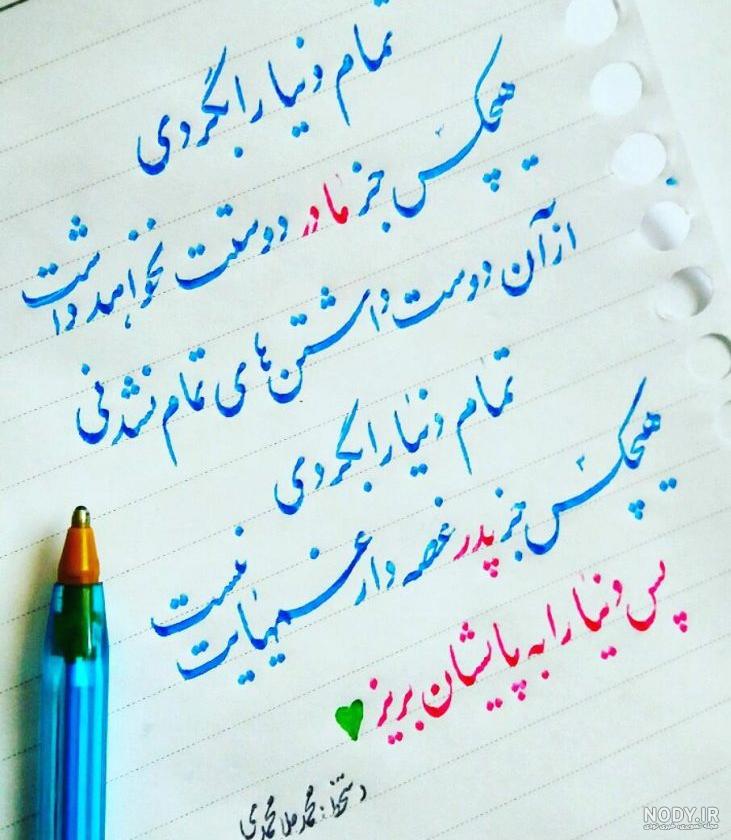 تمام دنیا را بگردی
هیچکس جز مادر دوستت نخواهد داشت
از آن دوست داشتن های تمام نشدنی
تمام دنیا را بگردی
هیچکس جز پدر غصه دار غمهایت نیست
پس دنیا را به پایشان بریز
دستخط: محمد ملامحمدی
NODY.IR